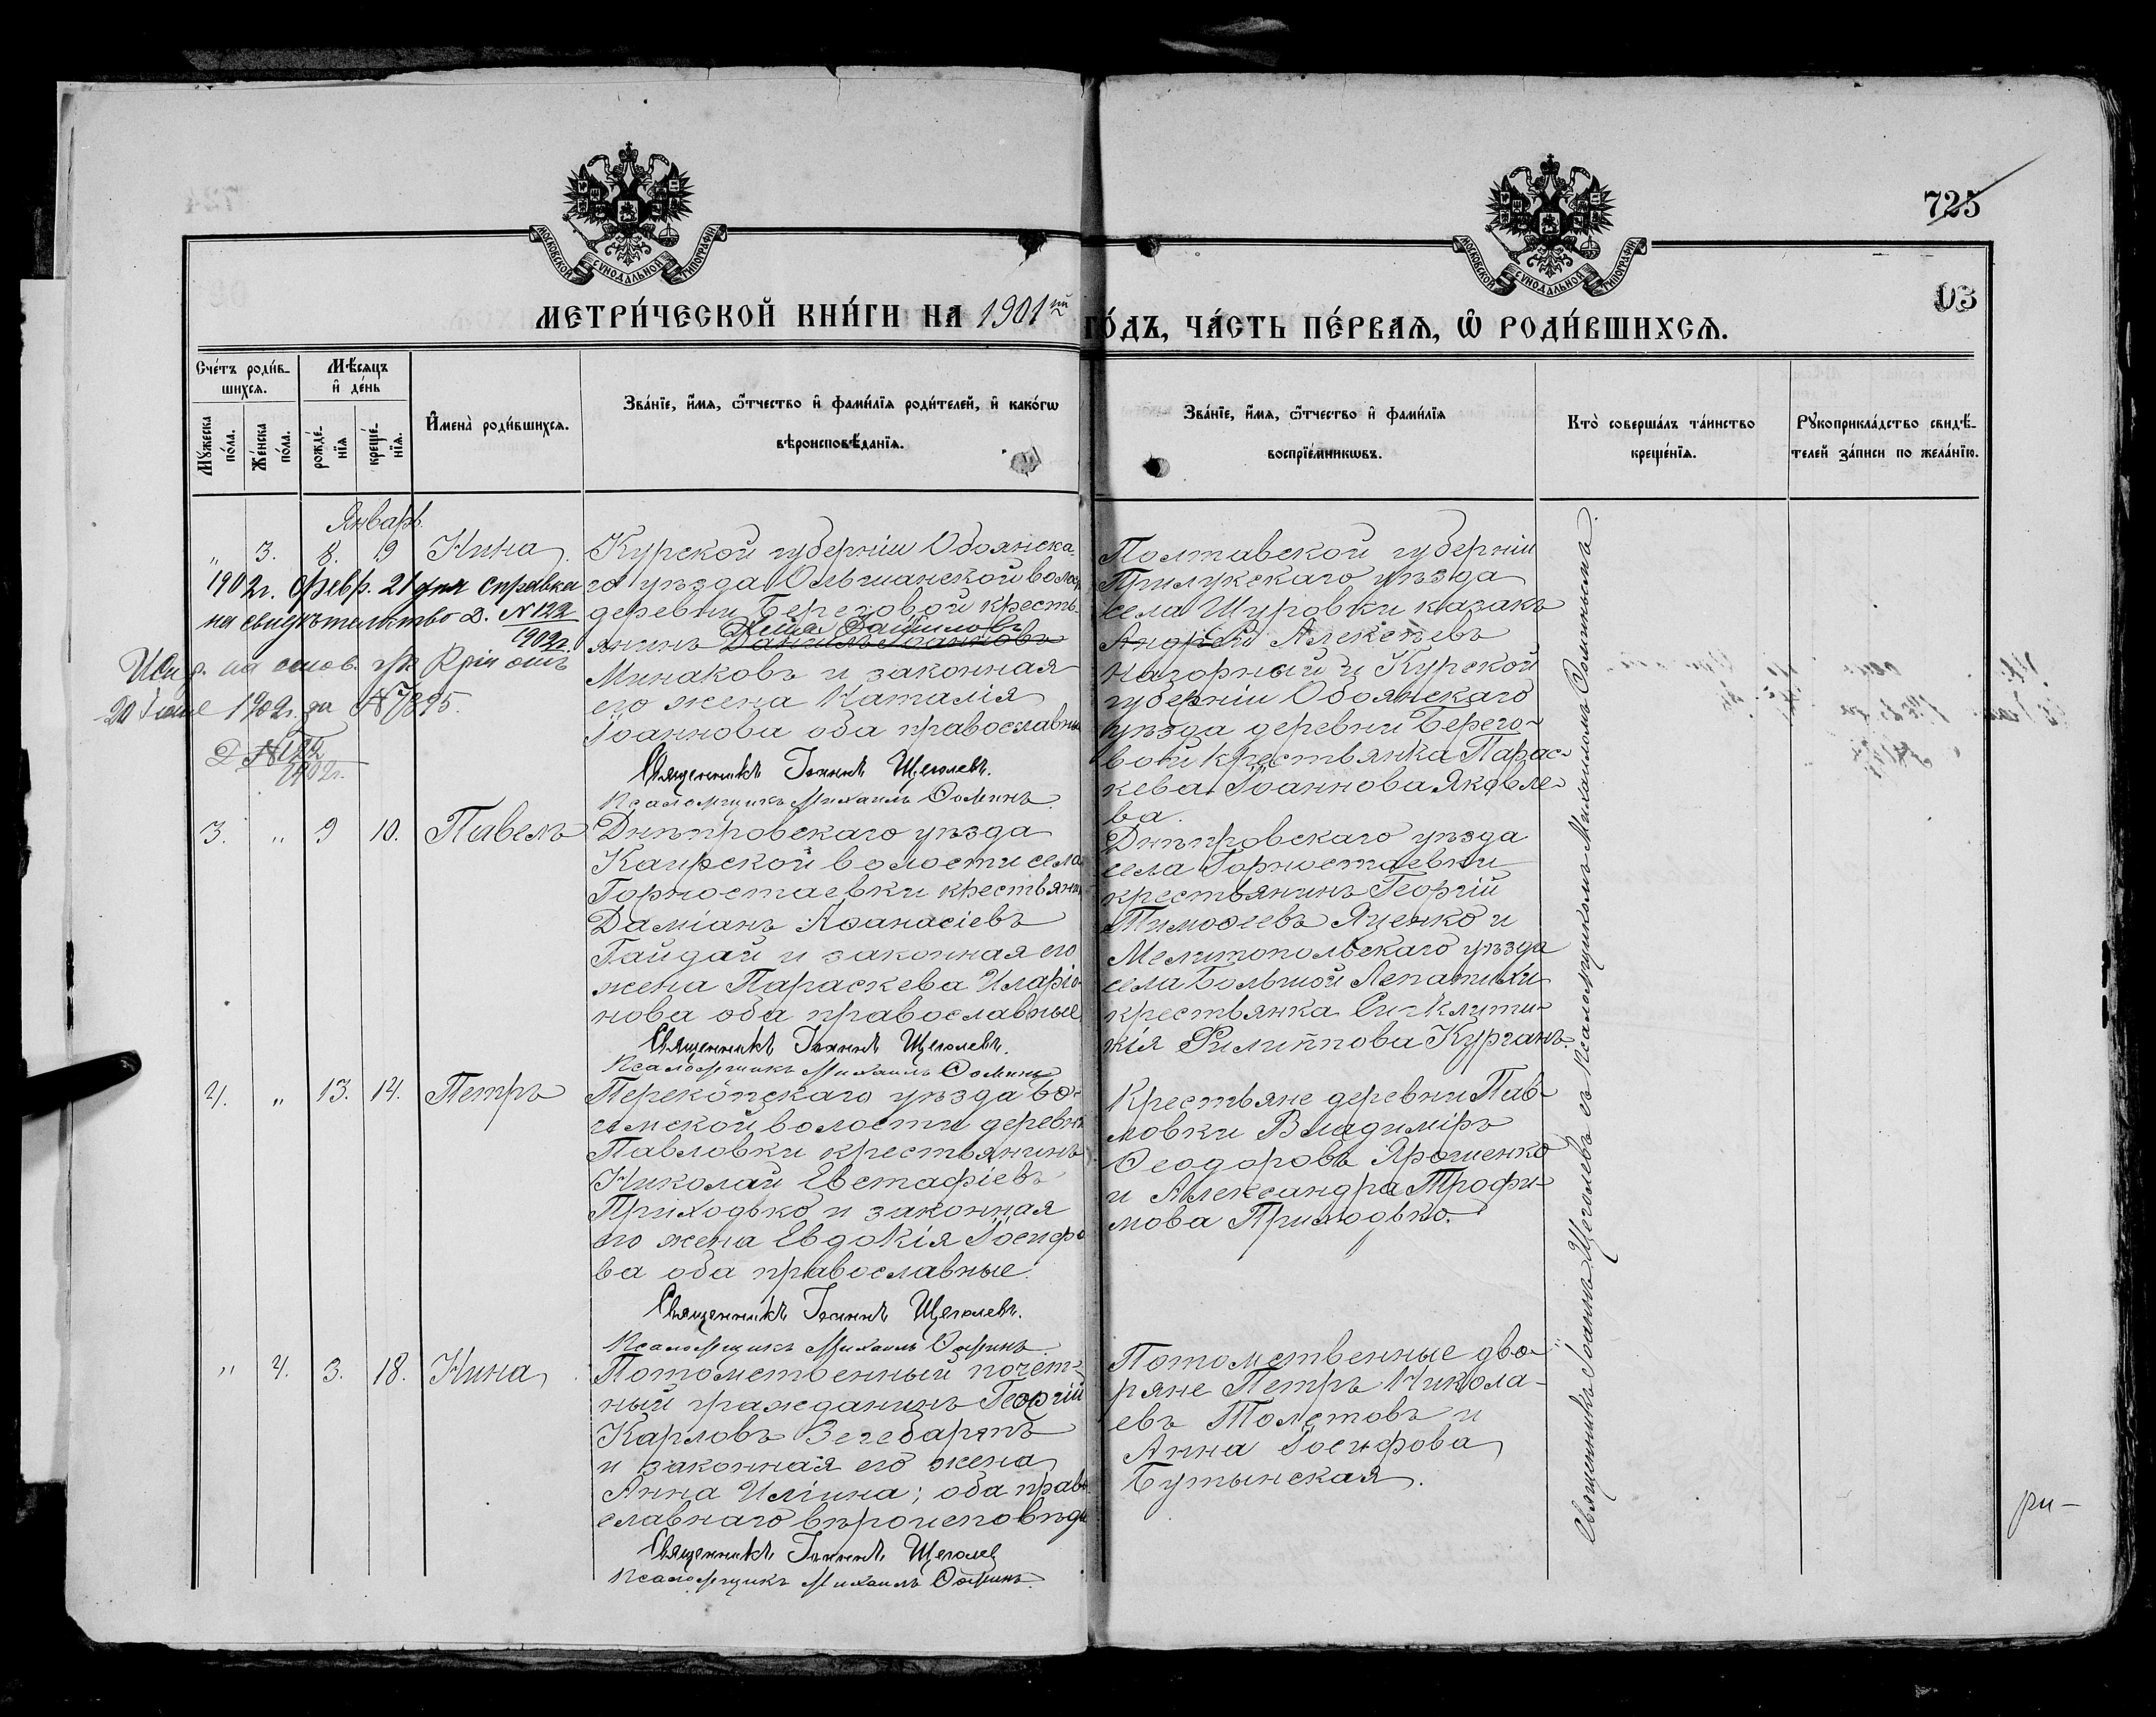 725
103
МОСКОВСКОЙ СѴНОДАЛЬНОЙ ТИПОГРАФІИ
МОСКОВСКОЙ СѴНОДАЛЬНОЙ ТИПОГРАФІИ
МЕТРИ́ЧЕСКОЙ КНИ́ГИ НА 1901 й ГО́ДЪ, ЧА́СТЬ ПЕ́РВАѦ, Ѽ РОДИ́ВШИХСѦ.
Сче́тъ роди́в-
шихсѧ.
Мꙋ́жеска по́ла.
Же́нска по́ла.
Мѣ́сяцъ
и҆ де́нь
рожде́-
нїѧ
креще́-
нїѧ.
И҆мена̀ роди́вшихсѧ.
Зва́нїе, и҆́мѧ, ѻ҆́тчество и҆ фамѝлїѧ роди́телей, и҆ како́гѡ
вѣроисповѣ́данїѧ.
Зва́нїе, и҆́мѧ, ѻ҆́тчество и҆ фамѝлїѧ
воспрїе́мникѡвъ.
Кто̀ соверша́лъ та́инство
креще́нїѧ.
Рꙋкоприкла́дство свидѣ́-
телей за́писи по жела́нїю.
Январь.
" 3. 8. 9 Нина
1902г. Февр. 21 дня справка
на свидѣтельство Д. N 122
1902г.
20 Іюля 1902г. за N 7895.
Д N 122
1902г.
Курской губерніи Обоянска-
го уѣзда Ольшанской волос
деревни Березовой кресть-
янинъ Даніилъ Іоанновъ
Минаковъ и законная
его жена Наталія
Іоаннова оба православны
Священникъ Іоаннъ Щеголевъ.
Псаломщикъ Михаилъ Ѳоминъ.
Полтавской губерніи
Прилукскаго уѣзда
села Щуровки казакъ
Андрей Алексѣевъ
Нагорный и Курской
губерніи Обоянскаго
уѣзда деревни Берего-
вой крестьянка Парас-
кева Іоаннова Яковле-
ва.
3. " 9 10. Павелъ
Днѣпровскаго уѣзда
Каирской волости села
Горностаевки крестьянин
Даміанъ Аѳанасіевъ
Гайдай и законная его
жена Параскева Иларіо-
нова оба православные
Священникъ Іоаннъ Щеголевъ.
Псаломщикъ Михаилъ Ѳоминъ
Днѣпровскаго уѣзда
села Горностаевки
крестьянинъ Георгій
Тимоѳеевъ Яценко и
Мелитопольскаго уѣзда
села Большой Лепатихи
крестьянка Синклити-
кія Филиппова Курганъ.
4. " 13. 14. Петръ
Перекопскаго уѣзда Бо-
гемской волости деревни
Павловки крестьянинъ
Николай Евстафіевъ
Приходько и законная
его жена Евдокія Іосифо
ва оба православные.
Священникъ Іоаннъ Щеголевъ.
Псаломщикъ Михаилъ Ѳоминъ.
Крестьяне деревни Пав-
ловки Владиміръ
Ѳеодоровъ Ярошенко
и Александра Трофи-
мова Приходько.
" 4. 3. 18. Нина
Потомственный почет-
ный гражданинъ Георгій
Карловъ Зегебартъ
и законная его жена
Анна Ильина; оба право
славнаго вѣроисповѣда
Священникъ Іоаннъ Щеголев
Псаломщикъ Михаилъ Ѳоминъ.
Потомственные дво-
ряне Петръ Никола-
евъ Толстовъ и
Анна Іосифова
Бутынская.
Священникъ Іоаннъ Щеголевъ съ псаломщикомъ Михаиломъ Ѳоминымъ.
ри-